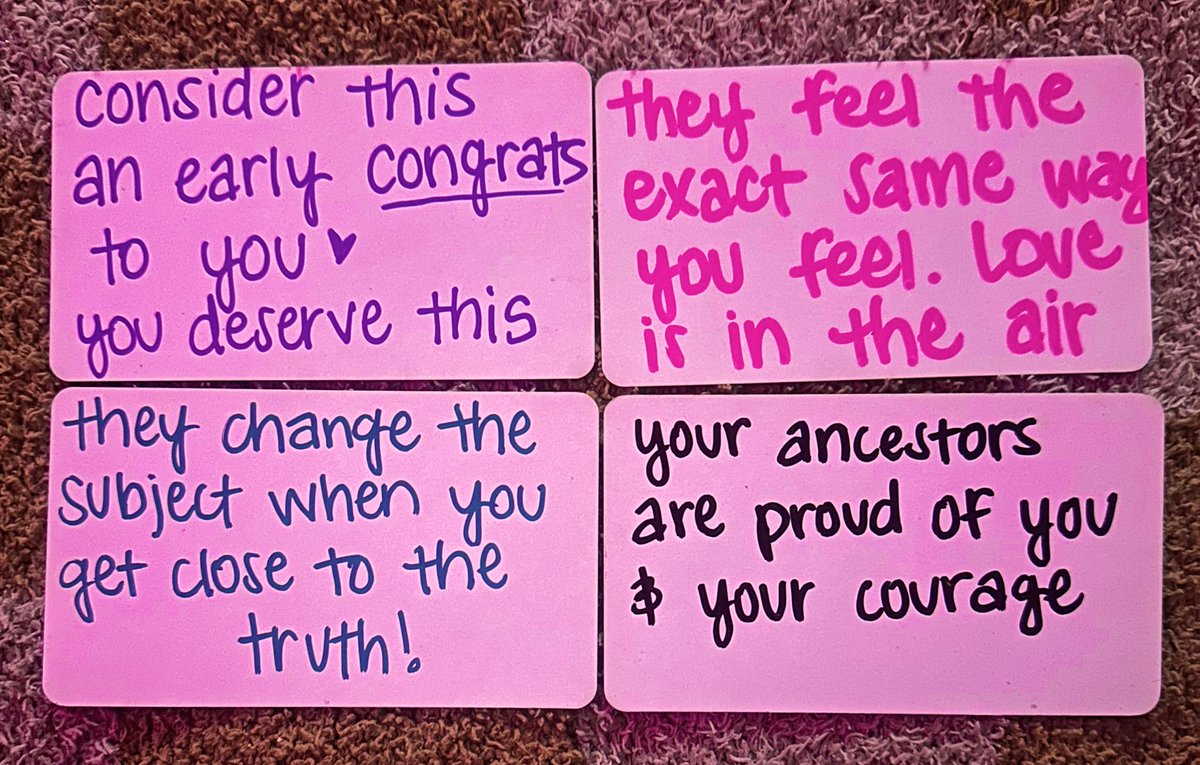 consider this
an early congrats
to you ♥
you deserve this
they feel the
exact same way
you feel. Love
is in the air
they change the
subject when you
get close to the
truth!
your ancestors
are proud of you
& your courage